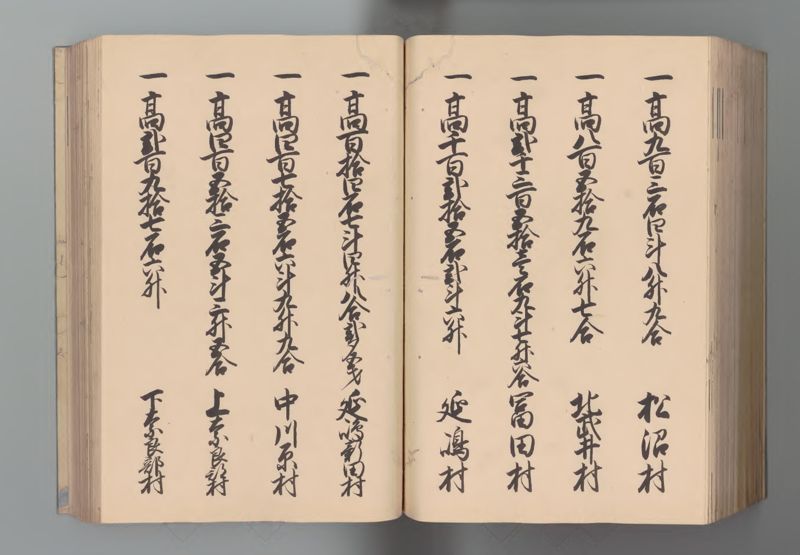 一 高九百三石四斗八升九合 松沼村
一 高八百五拾九石六升七合 北武井村
一 高弐千三百五拾壱石九斗七升八合 富田村
一 高千百弐拾五石弐斗六升 延嶋村
一 高百拾四石七斗四升八合弐勺五才 延嶋新田村
一 高四百七拾五石六斗九升九合 中川原村
一 高四百五拾三石五斗三升五合 上奈良部村
一 高弐百九拾七石六升 下奈良部村